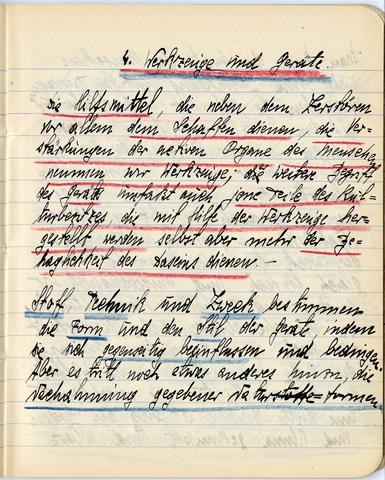 4. Werkzeuge und Geräte.
Die Hilfsmittel, die neben dem Zerstören
vor allem dem Schaffen dienen, die Ver-
stärkungen der activen Organe des Menschen
nennen wir Werkzeuge; der weitere Begriff
des Geräts umfasst auch jene Teile des Kul-
turbesitzes, die mit Hilfe der Werkzeuge her-
gestellt werden selbst aber mehr der Be-
haglichkeit des Daseins dienen. –
Stoff Technik und Zweck bestimmen
die Form und den Stil der Geräte indem
sie sich gegenseitig beeinflussen und bedingen
Aber es tritt noch etwas anderes hinzu, die
Nachahmung gegebener Natur formen